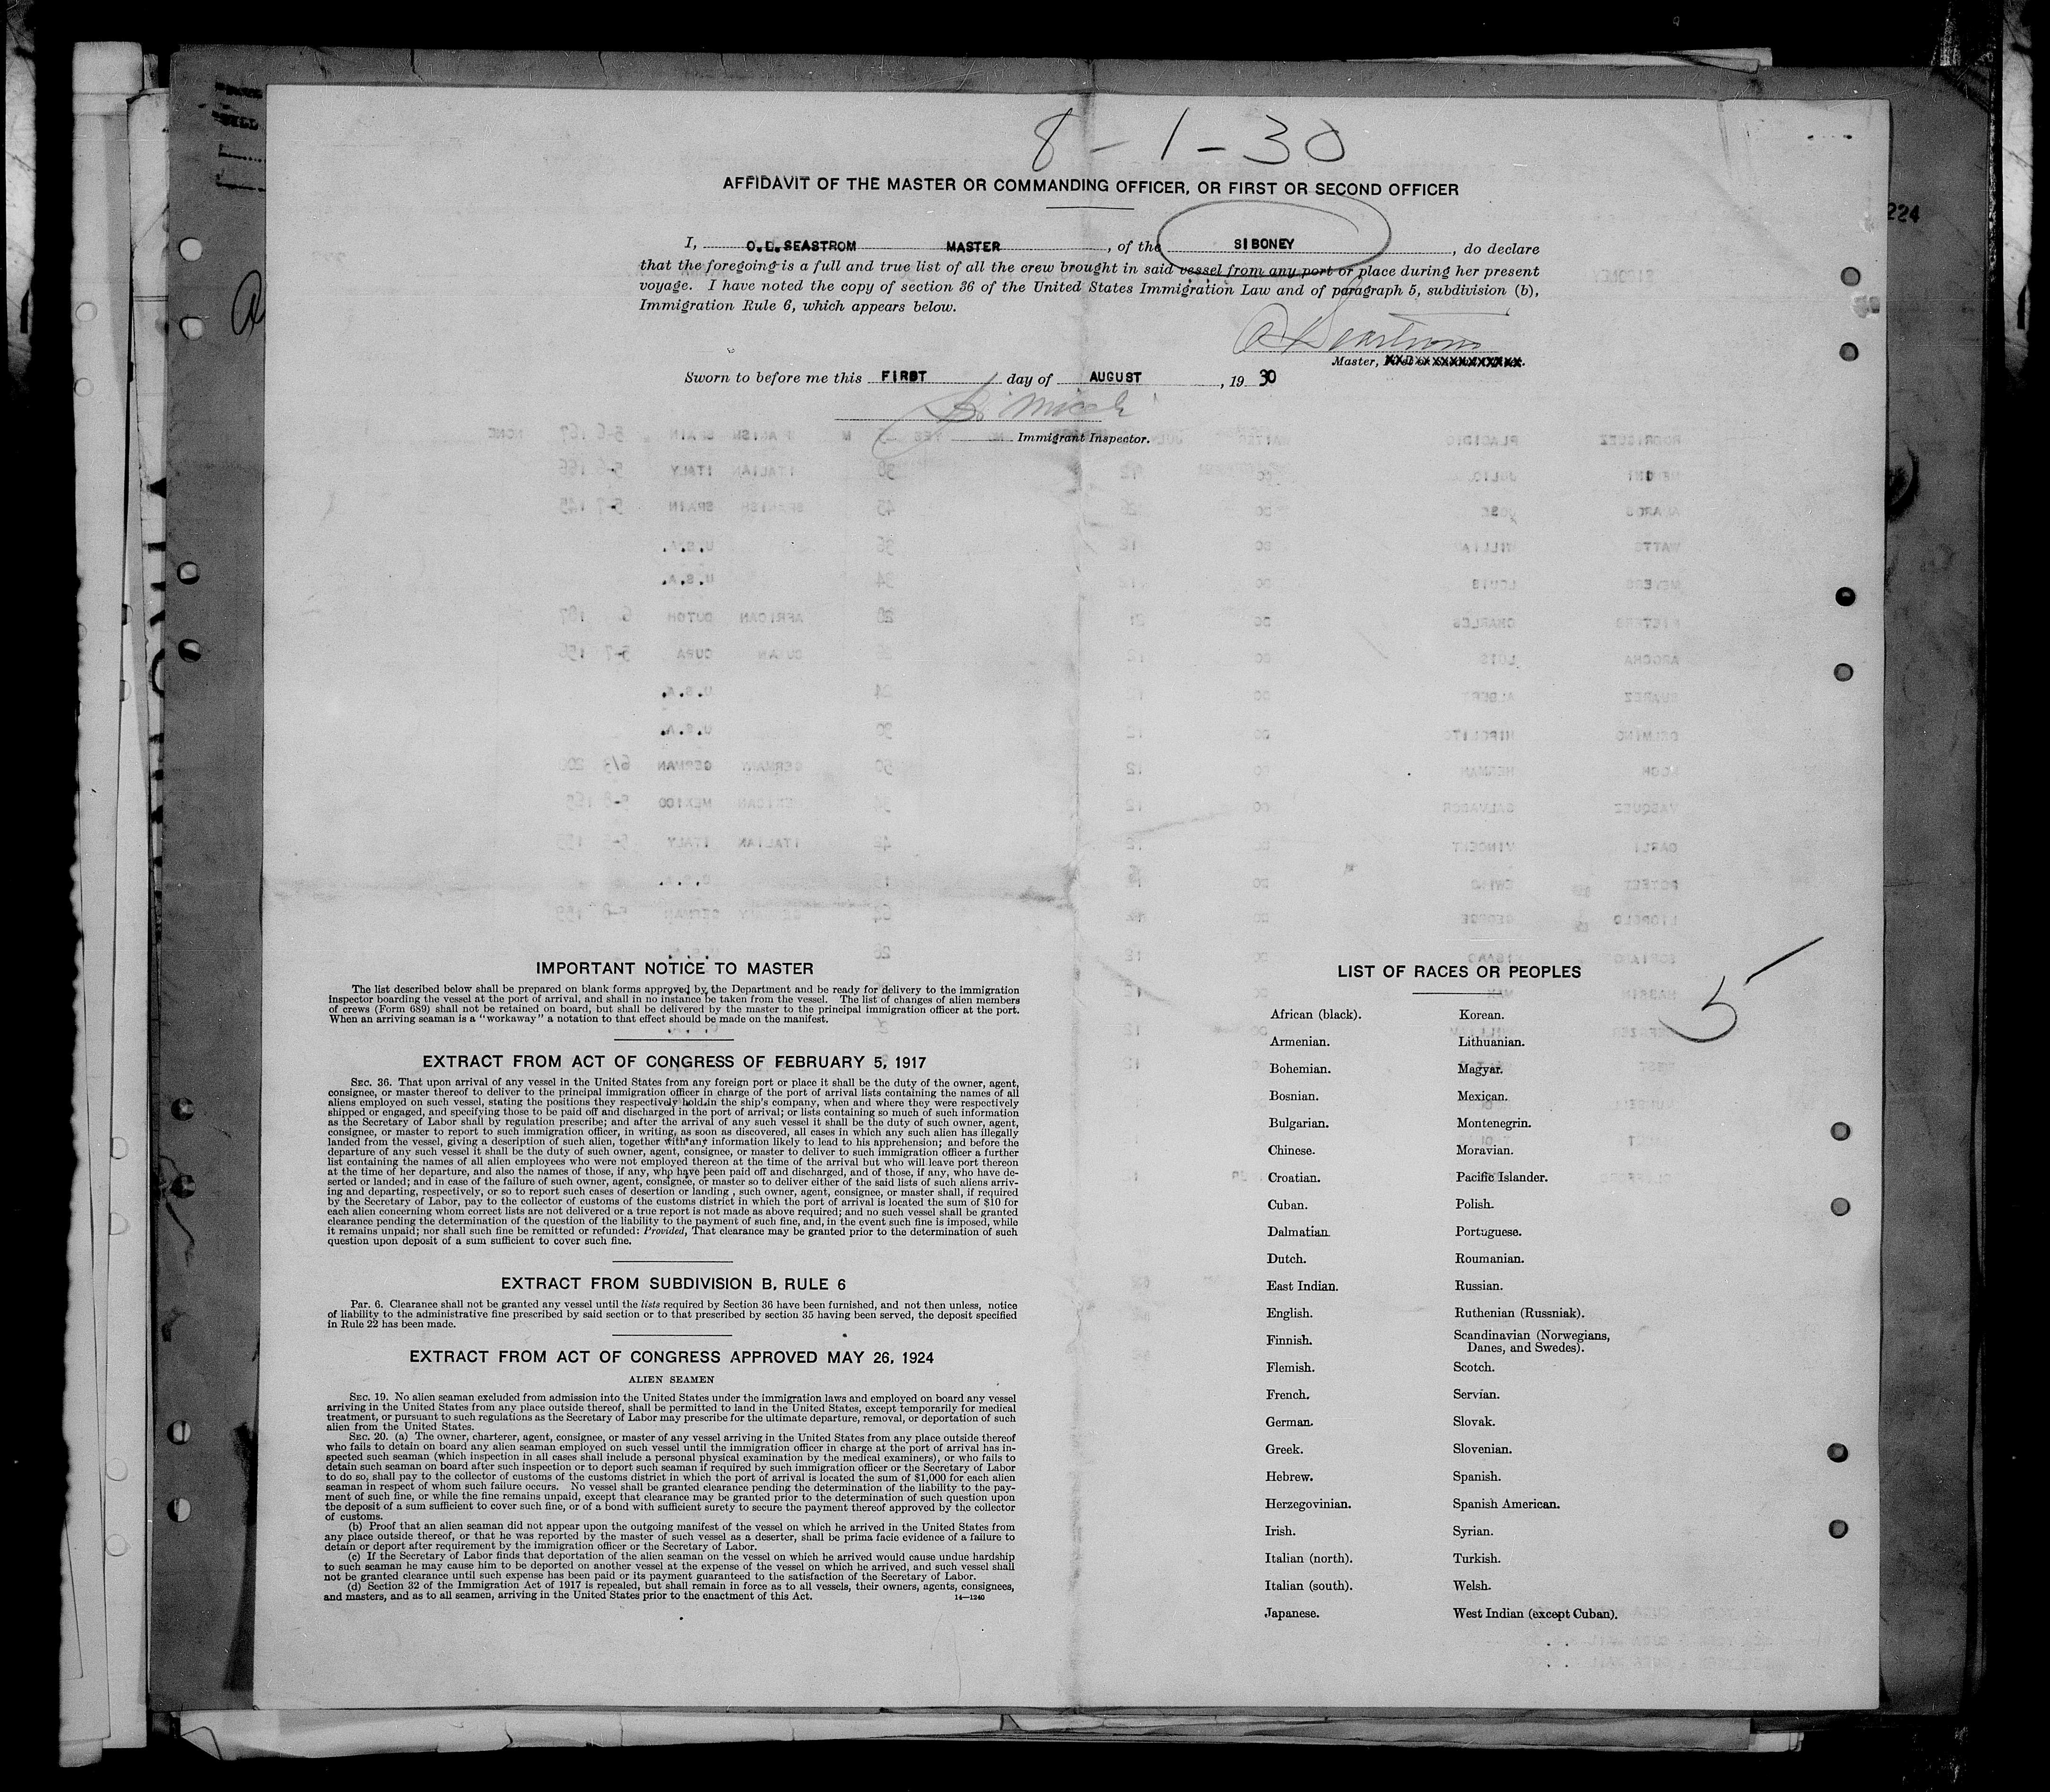 8-1-30
AFFIDAVIT OF THE MASTER OR COMMANDING OFFICER, OR FIRST OR SECOND OFFICER
224
I, O.L. SEASTROM MASTER, of the SIBONEY, do declare
that the foregoing is a full and true list of all the crew brought in said vessel from any port or place during her present
voyage. I have noted the copy of section 36 of the United States Immigration Law and of paragraph 5, subdivision (b),
Immigration Rule 6, which appears below.
Master,
Sworn to before me this FIRST day of AUGUST, 19 30
Immigrant Inspector.
IMPORTANT NOTICE TO MASTER
The list described below shall be prepared on blank forms approved by the Department and be ready for delivery to the immigration
inspector boarding the vessel at the port of arrival, and shall in no instance be taken from the vessel. The list of changes of alien members
of crews (Form 689) shall not be retained on board, but shall be delivered by the master to the principal immigration officer at the port.
When an arriving seaman is a "workaway" a notation to that effect should be made on the manifest.
EXTRACT FROM ACT OF CONGRESS OF FEBRUARY 5, 1917
SEC. 36. That upon arrival of any vessel in the United States from any foreign port or place it shall be the duty of the owner, agent,
consignee, or master thereof to deliver to the principal immigration officer in charge of the port of arrival lists containing the names of all
aliens employed on such vessel, stating the positions they respectively hold in the ship's company, when and where they were respectively
shipped or engaged, and specifying those to be paid off and discharged in the port of arrival; or lists containing so much of such information
as the Secretary of Labor shall by regulation prescribe; and after the arrival of any such vessel it shall be the duty of such owner, agent,
consignee, or master to report to such immigration officer, in writing, as soon as discovered, all cases in which any such alien has illegally
landed from the vessel, giving a description of such alien, together with any information likely to lead to his apprehension; and before the
departure of any such vessel it shall be the duty of such owner, agent, consignee, or master to deliver to such immigration officer a further
list containing the names of all alien employees who were not employed thereon at the time of the arrival but who will leave port thereon
at the time of her departure, and also the names of those, if any, who have been paid off and discharged, and of those, if any, who have de-
serted or landed; and in case of the failure of such owner, agent, consignee, or master so to deliver either of the said lists of such aliens arriv-
ing and departing, respectively, or so to report such cases of desertion or landing, such owner, agent, consignee, or master shall, if required
by the Secretary of Labor, pay to the collector of customs of the customs district in which the port of arrival is located the sum of $10 for
each alien concerning whom correct lists are not delivered or a true report is not made as above required; and no such vessel shall be granted
clearance pending the determination of the question of the liability to the payment of such fine, and, in the event such fine is imposed, while
it remains unpaid; nor shall such fine be remitted or refunded: Provided, That clearance may be granted prior to the determination of such
question upon deposit of a sum sufficient to cover such fine.
EXTRACT FROM SUBDIVISION B, RULE 6
PAR. 6. Clearance shall not be granted any vessel until the lists required by Section 36 have been furnished, and not then unless, notice
of liability to the administrative fine prescribed by said section or to that prescribed by section 35 having been served, the deposit specified
in Rule 22 has been made.
EXTRACT FROM ACT OF CONGRESS APPROVED MAY 26, 1924
ALIEN SEAMEN
SEC. 19. No alien seaman excluded from admission into the United States under the immigration laws and employed on board any vessel
arriving in the United States from any place outside thereof, shall be permitted to land in the United States, except temporarily for medical
treatment, or pursuant to such regulations as the Secretary of Labor may prescribe for the ultimate departure, removal, or deportation of such
alien from the United States.
SEC. 20. (a) The owner, charterer, agent, consignee, or master of any vessel arriving in the United States from any place outside thereof
who fails to detain on board any alien seaman employed on such vessel until the immigration officer in charge at the port of arrival has in-
spected such seaman (which inspection in all cases shall include a personal physical examination by the medical examiners), or who fails to
detain such seaman on board after such inspection or to deport such seaman if required by such immigration officer or the Secretary of Labor
to do so, shall pay to the collector of customs of the customs district in which the port of arrival is located the sum of $1,000 for each alien
seaman in respect of whom such failure occurs. No vessel shall be granted clearance pending the determination of the liability to the pay-
ment of such fine, or while the fine remains unpaid, except that clearance may be granted prior to the determination of such question upon
the deposit of a sum sufficient to cover such fine, or of a bond with sufficient surety to secure the payment thereof approved by the collector
of customs.
(b) Proof that an alien seaman did not appear upon the outgoing manifest of the vessel on which he arrived in the United States from
any place outside thereof, or that he was reported by the master of such vessel as a deserter, shall be prima facie evidence of a failure to
detain or deport after requirement by the immigration officer or the Secretary of Labor.
(c) If the Secretary of Labor finds that deportation of the alien seaman on the vessel on which he arrived would cause undue hardship
to such seaman he may cause him to be deported on another vessel at the expense of the vessel on which he arrived, and such vessel shall
not be granted clearance until such expense has been paid or its payment guaranteed to the satisfaction of the Secretary of Labor.
(d) Section 32 of the Immigration Act of 1917 is repealed, but shall remain in force as to all vessels, their owners, agents, consignees,
and masters, and as to all seamen, arriving in the United States prior to the enactment of this Act.
14—1240
LIST OF RACES OR PEOPLES
5
African (black). Korean.
Armenian. Lithuanian.
Bohemian. Magyar.
Bosnian. Mexican.
Bulgarian. Montenegrin.
Chinese. Moravian.
Croatian. Pacific Islander.
Cuban. Polish.
Dalmatian. Portuguese.
Dutch. Roumanian.
East Indian. Russian.
English. Ruthenian (Russniak).
Finnish. Scandinavian (Norwegians,
Danes, and Swedes).
Flemish. Scotch.
French. Servian.
German. Slovak.
Greek. Slovenian.
Hebrew. Spanish.
Herzegovinian. Spanish American.
Irish. Syrian.
Italian (north). Turkish.
Italian (south). Welsh.
Japanese. West Indian (except Cuban).